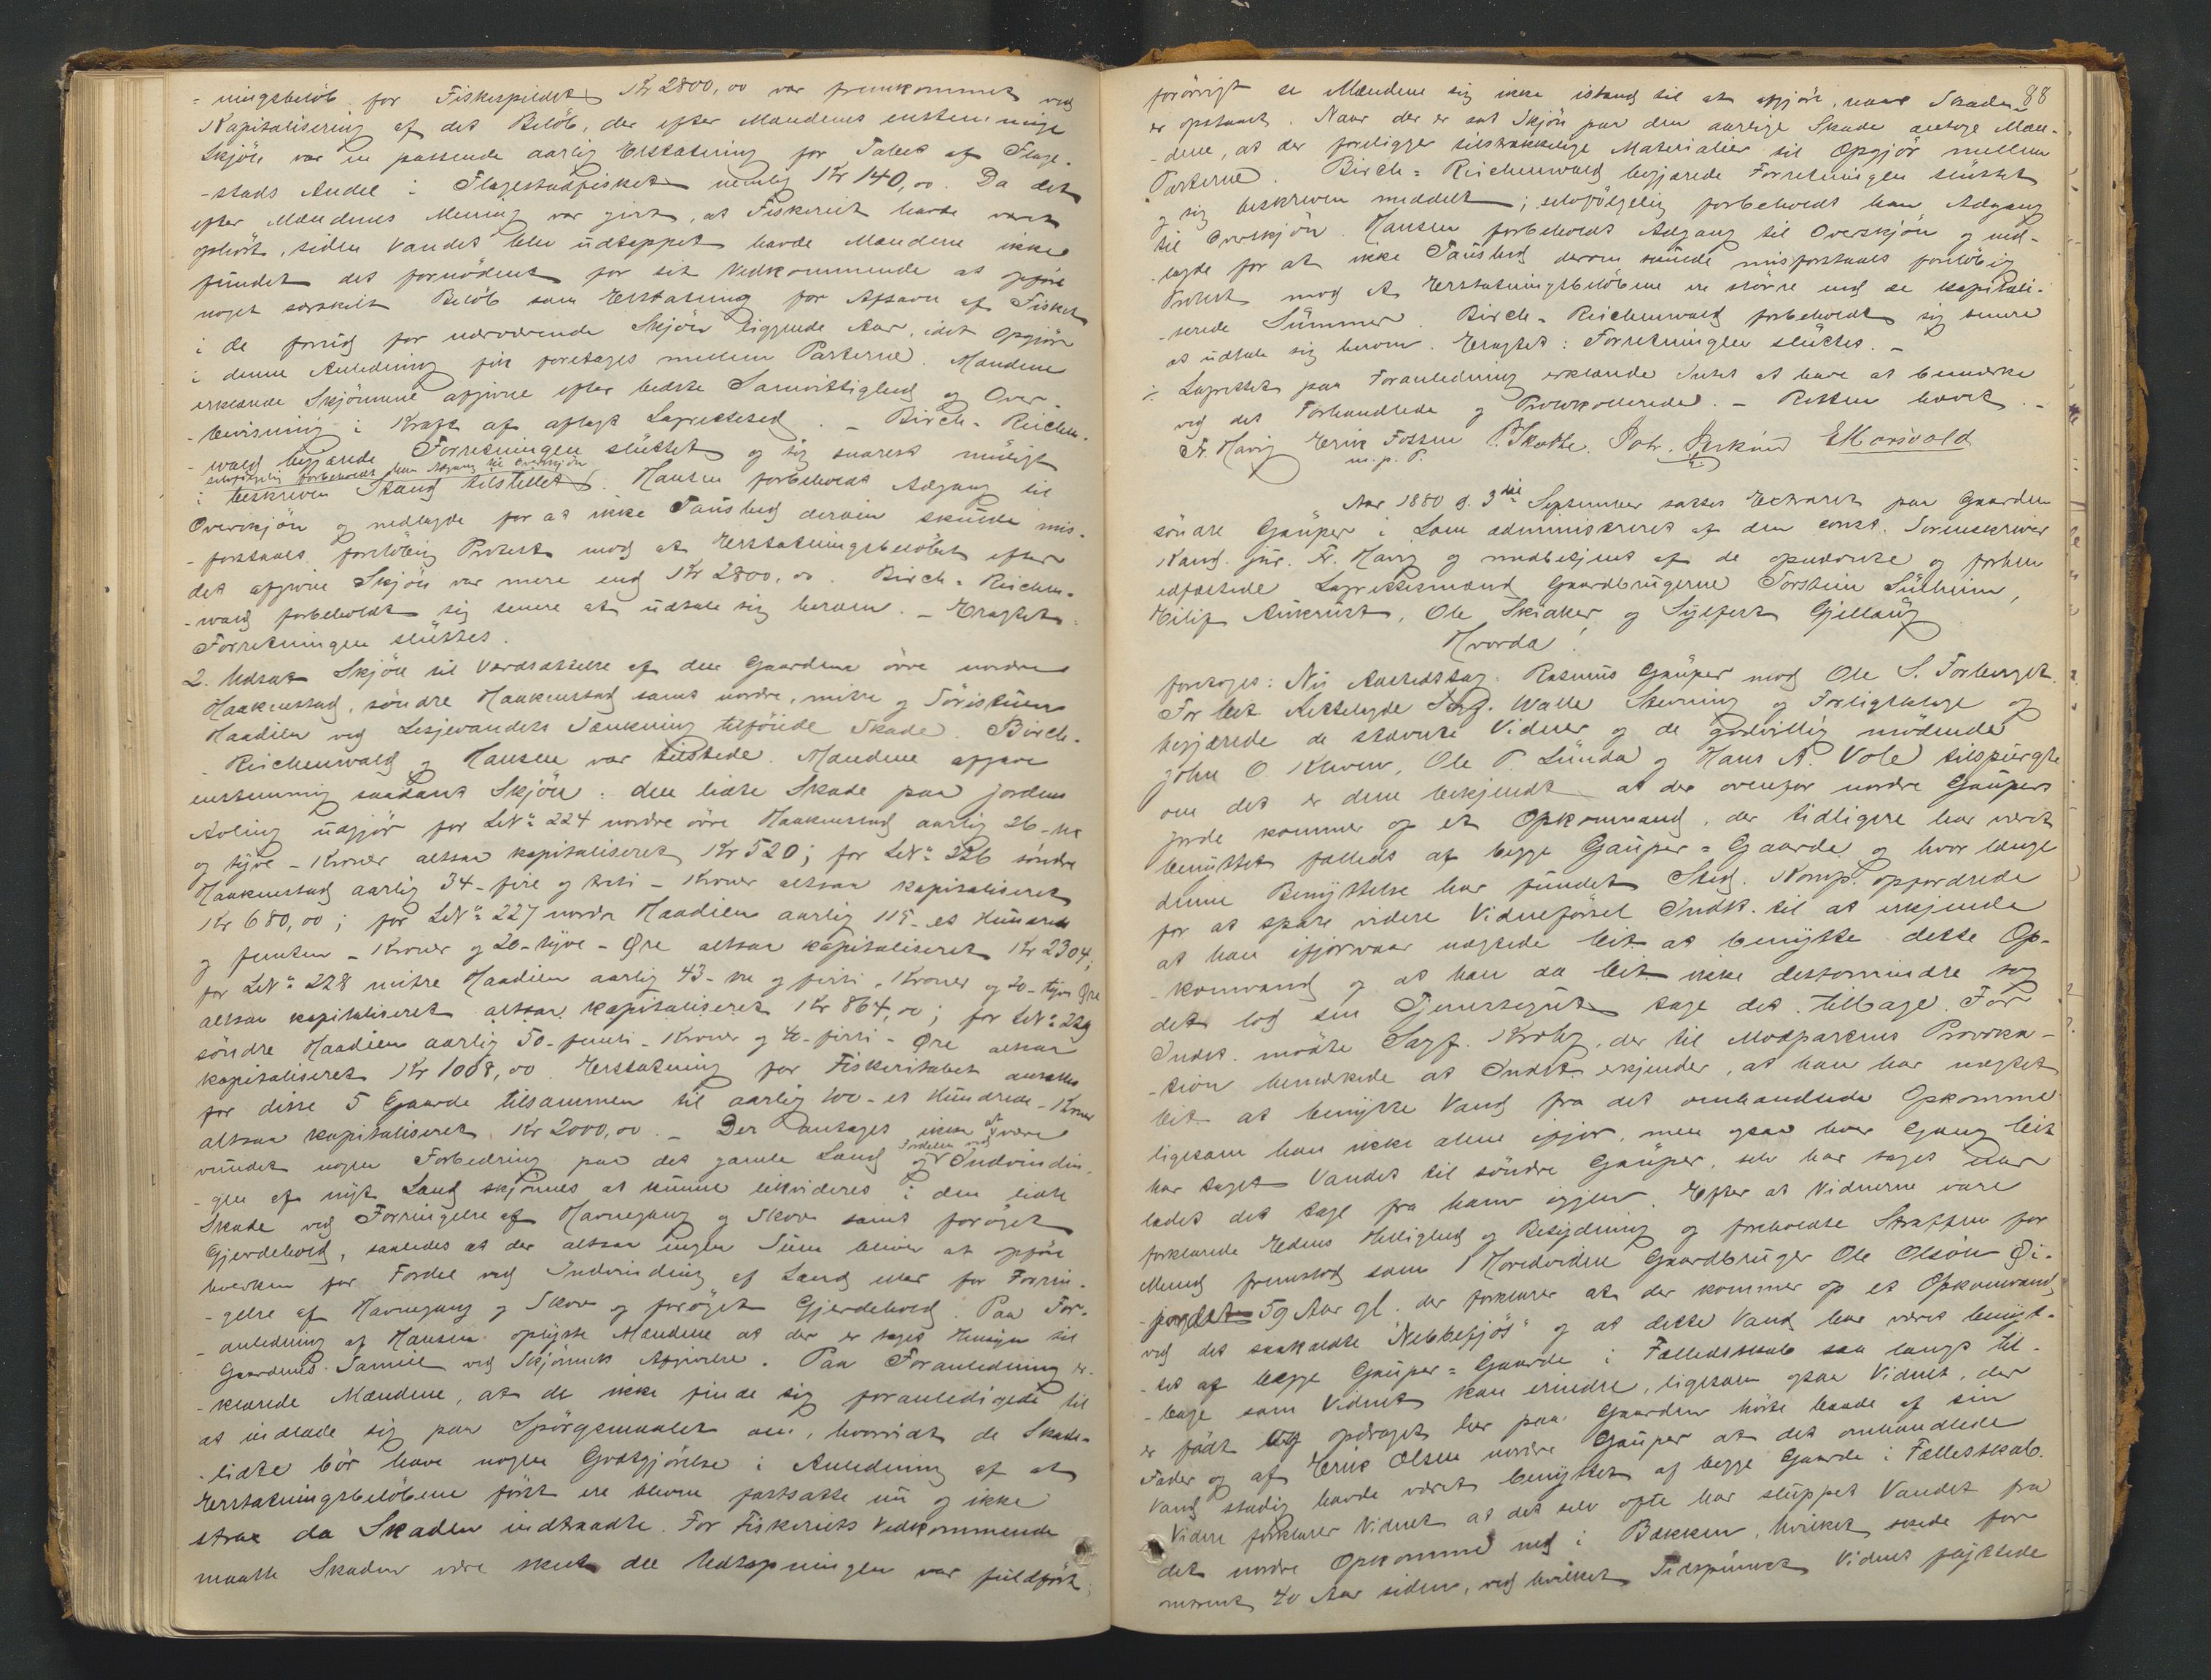 -ningsbeløb for Fiskespildet Kr 2800,00 var fremkommet ved
Kapitalisering af det Beløb, der efter Mændenes enstemmige
Skjøn var en passende aarlig Erstatning for Tabet af Flage-
-stads Andel i Flagestadfisket nemlig Kr 140,00. Da det
efter Mændenes Mening var givet, at Fiskeriet havde været
ophørt, siden Vandet blev udtappet havde Mændene ikke
fundet det fornødent for sit Vedkommende at opføre
noget særskilt Beløb som Erstatning for Afsavn af Fisket
i de forud for nærværende Skjøn liggende Aar, idet Opgjør
i denne Anledning fik foretages mellem Parterne. Mændene
erklærede Skjønnene afgivne efter bedste Samvittighed og Over-
-bevisning i Kraft af aflagt Lagrettesed. - Birch-Reichen-
-wald begjærede Forretningen sluttet og sig snarest muligt
selvfølgelig forbeholdt han Adgang til Overskjøn
i beskreven Stand tilstillet. Hansen forbeholdt Adgang til
Overskjøn og nedlagde for at ikke Taushed derom skulde mis-
-forstaaes foreløbig Protest mod at Erstatningsbeløbet efter
det afgivne Skjøn var mere end Kr 2800,00. Birch-Reichen-
-wald forbeholdt sig senere at udtale sig herom. - Eragtet:
Forretningen sluttes.
2. Udsat Skjøn til Værdsættelse af den Gaardene øvre nordre
Haakenstad, søndre Haakenstad samt nordre, mitre og Søristuen
Haadien ved Lesjevandets Sænkning tilføiede Skade. Birch-
-Reichenwald og Hansen var tilstede. Mændene afgave
enstemmig saadant Skjøn: den lidte Skade paa Jordens
Avling udgjør for LNo 224 nordre øvre Haakenstad aarlig 26-sex
og tyve-Kroner altsaa kapitaliseret Kr 520; for LNo 226 søndre
Haakenstad aarlig 34-fire og treti-Kroner altsaa kapitaliseret
Kr 680,00; for LNo 227 nordre Haadien aarlig 115-et Hundrede
og femten-Kroner og 20-tyve-Øre altsaa kapitaliseret Kr 2304;
for LNo 228 mitre Haadien aarlig 43-tre og firti-Kroner og 20-tyve Øre
altsaa kapitaliseret altsaa kapitaliseret Kr 864,00; for LNo 229
søndre Haadien aarlig 50-femti-Kroner og 40-firti-Øre altsaa
kapitaliseret Kr 1008,00. Erstatning for Fiskeritabet ansættes
for disse 5 Gaarde tilsammen til aarlig 100-et Hundrede-Kroner
altsaa kapitaliseret Kr 2000,00. - Der antages ikke at være
vundet nogen Forbedring paa det gamle Land og Fordelen ved Indvindin-
-gen af nyt Land skjønnes at kunne likvideres i den lidte
Skade ved Forringelse af Havnegang og Skov samt forøget
Gjerdehold, saaledes at der altsaa ingen Sum bliver at opføre
hverken for Fordel ved Indvinding af Land eller for Forrin-
-gelse af Havnegang og Skov og forøget Gjerdehold. Paa For-
-anledning af Hansen oplyste Mændene at der er taget Hensyn til
Gaardenes Sameie ved Skjønnets Afgivelse. Paa Foranledning er-
-klærede Mændene, at de ikke finde sig foranledigede til
at indlade sig paa Spørgsmaalet om, hvorvidt de Skade-
-lidte bør have nogen Godtgjørelse i Anledning af at
Erstatningsbeløbene først ere blevne fastsatte nu og ikke
strax da Skaden indtraadte. For Fiskeriets Vedkommende
maatte Skaden være skeet da Udtapningen var fuldført;
88
forøvrigt se Mændene sig ikke istand til at afgjøre, naar Skaden
er opstaaet. Naar der er sat Skjøn paa den aarlige Skade antage Mæn-
-dene, at der foreligger tilstrækkelige Materialier til Opgjør mellem
Parterne. Birch-Reichenwald begjærede Forretningen sluttet
og sig beskreven meddelt; selvfølgelig forbeholdt han Adgang
til Overskjøn. Hansen forbeholdt Adgang til Overskjøn og ned-
-lagde for at ikke Taushed derom skulde misforstaaes foreløbig
Protest mod at Erstatningsbeløbene ere større end de kapitali-
-serede Summer. Birch-Reichenwald forbeholdt sig senere
at udtale sig herom. Eragtet: Forretningen sluttes. -
Lagrettet paa Foranledning erklærede Intet at have at bemærke
ved det Forhandlede og Protokollerede. - Retten hævet. -
Fr. Harig Erik Fossum P. Skotte. Joh. E Korsvold
m. p. P.
Aar 1880 d. 3die September sattes Extraret paa Gaarden
søndre Gaupar i Lom administreret af den const. Sorenskriver
Kand. jur. Fr. Harig og medbetjent af de opnævnte og forhen
edfæstede Lagrettesmænd Gaardbrugerne Torstein Sulheim,
Eilif Aukrust, Ole Skiaker og Sylfest Gjellaug
Hvorda!
foretages: Ny Aastedssag: Rasmus Gaupar mod Ole S. Forberget.
For Cit. fremlagde Sagf. Walle Stevning og Forligsklage og
begjærede de stævnte Vidner og de godvillig mødende
John O. Kleven, Ole P. Lunda og Hans A. Vole tilspurgte
om det er dem bekjendt at der ovenfor nordre Gaupars
Jorde kommer op et Opkomvand, der tidligere har været
benyttet fælleds af begge Gaupar-Gaarde og hvor længe
denne Benyttelse har fundet Sted. Komp. opfordrede
for at spare videre Vidneførsel Indst. til at erkjende
at han ifjorvaar nægtede Cit. at benytte dette Op-
-komvand og at han da Cit. ikke destomindre tog
det lod sin Tjenestegut tage det tilbage. For
Indst. mødte Sagf. Krohg, der til Modpartens Provoka-
-tion bemærkede at Indst. erkjender, at han har nægtet
Cit. at benytte Vand fra det omhandlede Opkomme
ligesom han ikke alene ifjor, men ogsaa hver Gang Cit.
har taget Vandet til søndre Gaupar, selv har taget eller
ladet det tage fra ham igjen. Efter at Vidnerne vare
forklarede Edens Hellighed og Betydning og foreholdte Straffen for
Mened fremstod som 1 Hovedvidne Gaardbruger Ole Olsøn Øi-
-jordet 59 Aar gl. der forklarer at der kommer op et Opkomvand
ved det saakaldte "Nebbefjøs" og at dette Vand har været benyt-
-tet af begge Gaupar-Gaarde i Fælledsskab saa langt til-
-bage som Vidnet kan erindre, ligesom ogsaa Vidnet, der
er født og opdraget her paa Gaarden hørte baade af sin
Fader og af Erik Olsen nordre Gaupar at det omhandlede
Vand stadig havde været benyttet af begge Gaarde i Fællesskab.
Videre forklarer Vidnet at det selv ofte har sluppet Vandet fra
det nordre Opkomme ned i Bækken, hvilket skede for
omtrent 40 Aar siden, ved hvilket Tidspunkt Vidnet flyttede